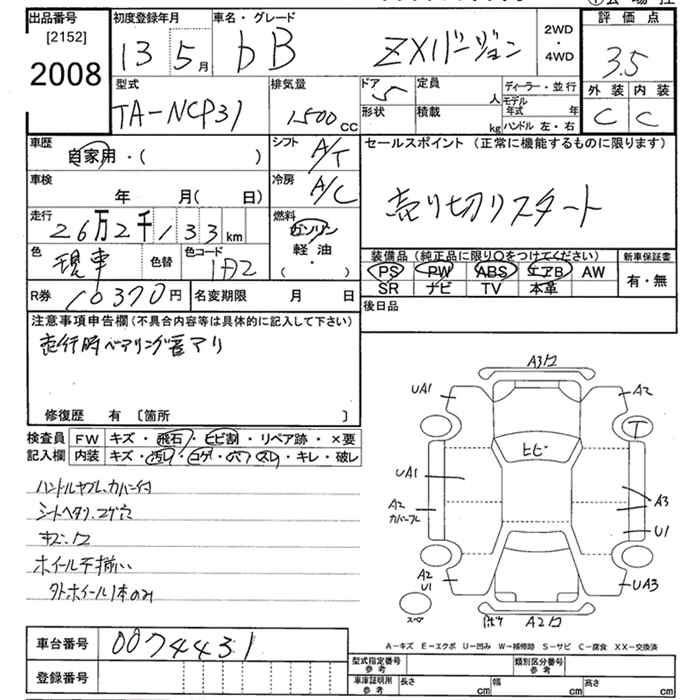 出品番号 初度登録年月 車名・グレード 2WD・4WD 評価点
[2152]
2008 13 5月 bB ZXバージョン 3.5
外装 内装
C C
型式 排気量 ドア 定員 ディーラー・並行
TA-NCP31 1500cc 5 人 モデル年式 年
形状 積載 kg ハンドル 左・右
車歴 シフト セールスポイント (正常に機能するものに限ります)
自家用・( ) A/T
車検 冷房
年 月( 日) A/C 売り切りスタート
走行 燃料
26万2千133km ガソリン
軽・油
( ・ )
色 色替 色コード
現車 1A2
装備品 (純正品に限り○をつけてください) 新車保証書
PS PW ABS エアB AW 有・無
SR ナビ TV 本革
R券 10370円 名変期限 月 日
後日品
注意事項申告欄(不具合内容等は具体的に記入して下さい)
走行時ベアリング音アリ
修復歴 有 [箇所 ]
検査員 FW キズ・飛石・ヒビ割・リペア跡・×要
記入欄 内装 キズ・汚レ・コゲ・穴・スレ・キレ・破レ
ハンドルヤブレ、カバー付
シートヘタリ、コゲ穴
キズ、ワ
ホイール不揃い
外ホイール1本のみ
A3ワ
UA1 A2
T
ヒビ
UA1
A2 A3
カバーフレ
U1
A2
U1 UA3
スペア A2ワ
車台番号 0074431
登録番号
A-キズ E-エクボ U-凹み W-補修跡 S-サビ C-腐食 XX-交換済
型式指定番号 参考 類別区分番号 参考
車庫証明用 参考 長さ cm 幅 cm 高さ cm